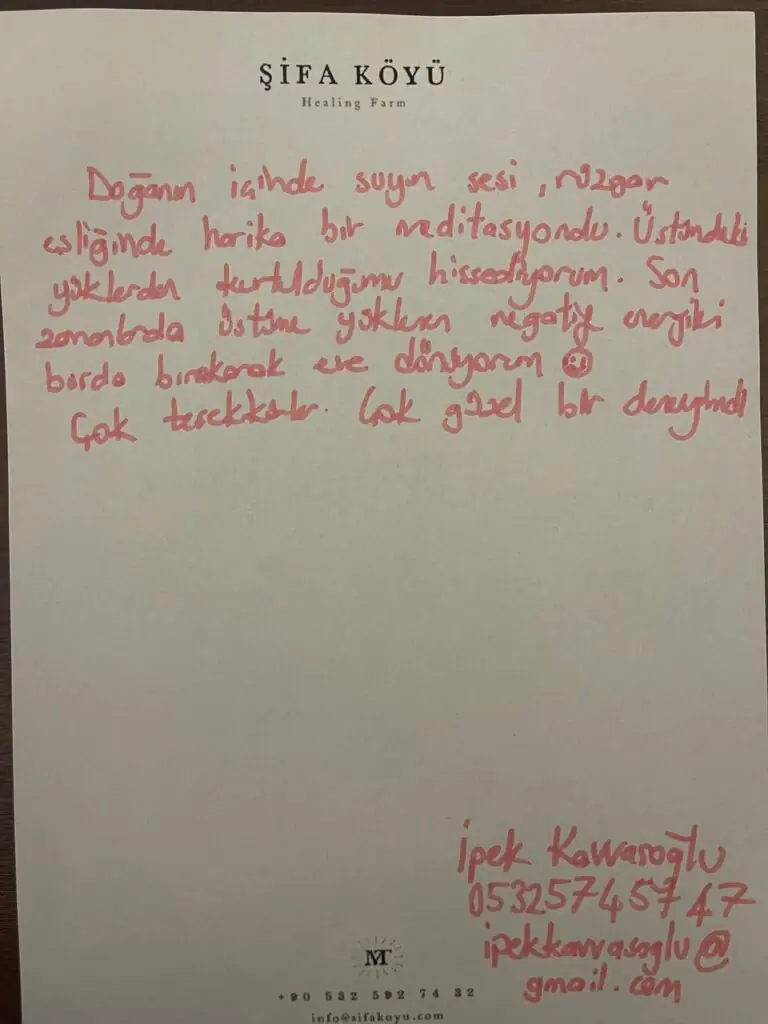 ŞİFA KÖYÜ
Healing Farm
Doğanın içinde suyun sesi, rüzgar
eşliğinde harika bir meditasyondu. Üstümdeki
yüklerden kurtulduğumu hissediyorum. Son
zamanlarda üstüme yüklenen negatif enerjiki
burda bırakarak eve dönüyorum ☺
Çok teşekkürler. Çok güzel bir deneyimdi
İpek Kavvasoğlu
05325745747
ipekkavvasoglu@
gmail.com
MT
+90 532 592 74 32
info@sifakoyu.com